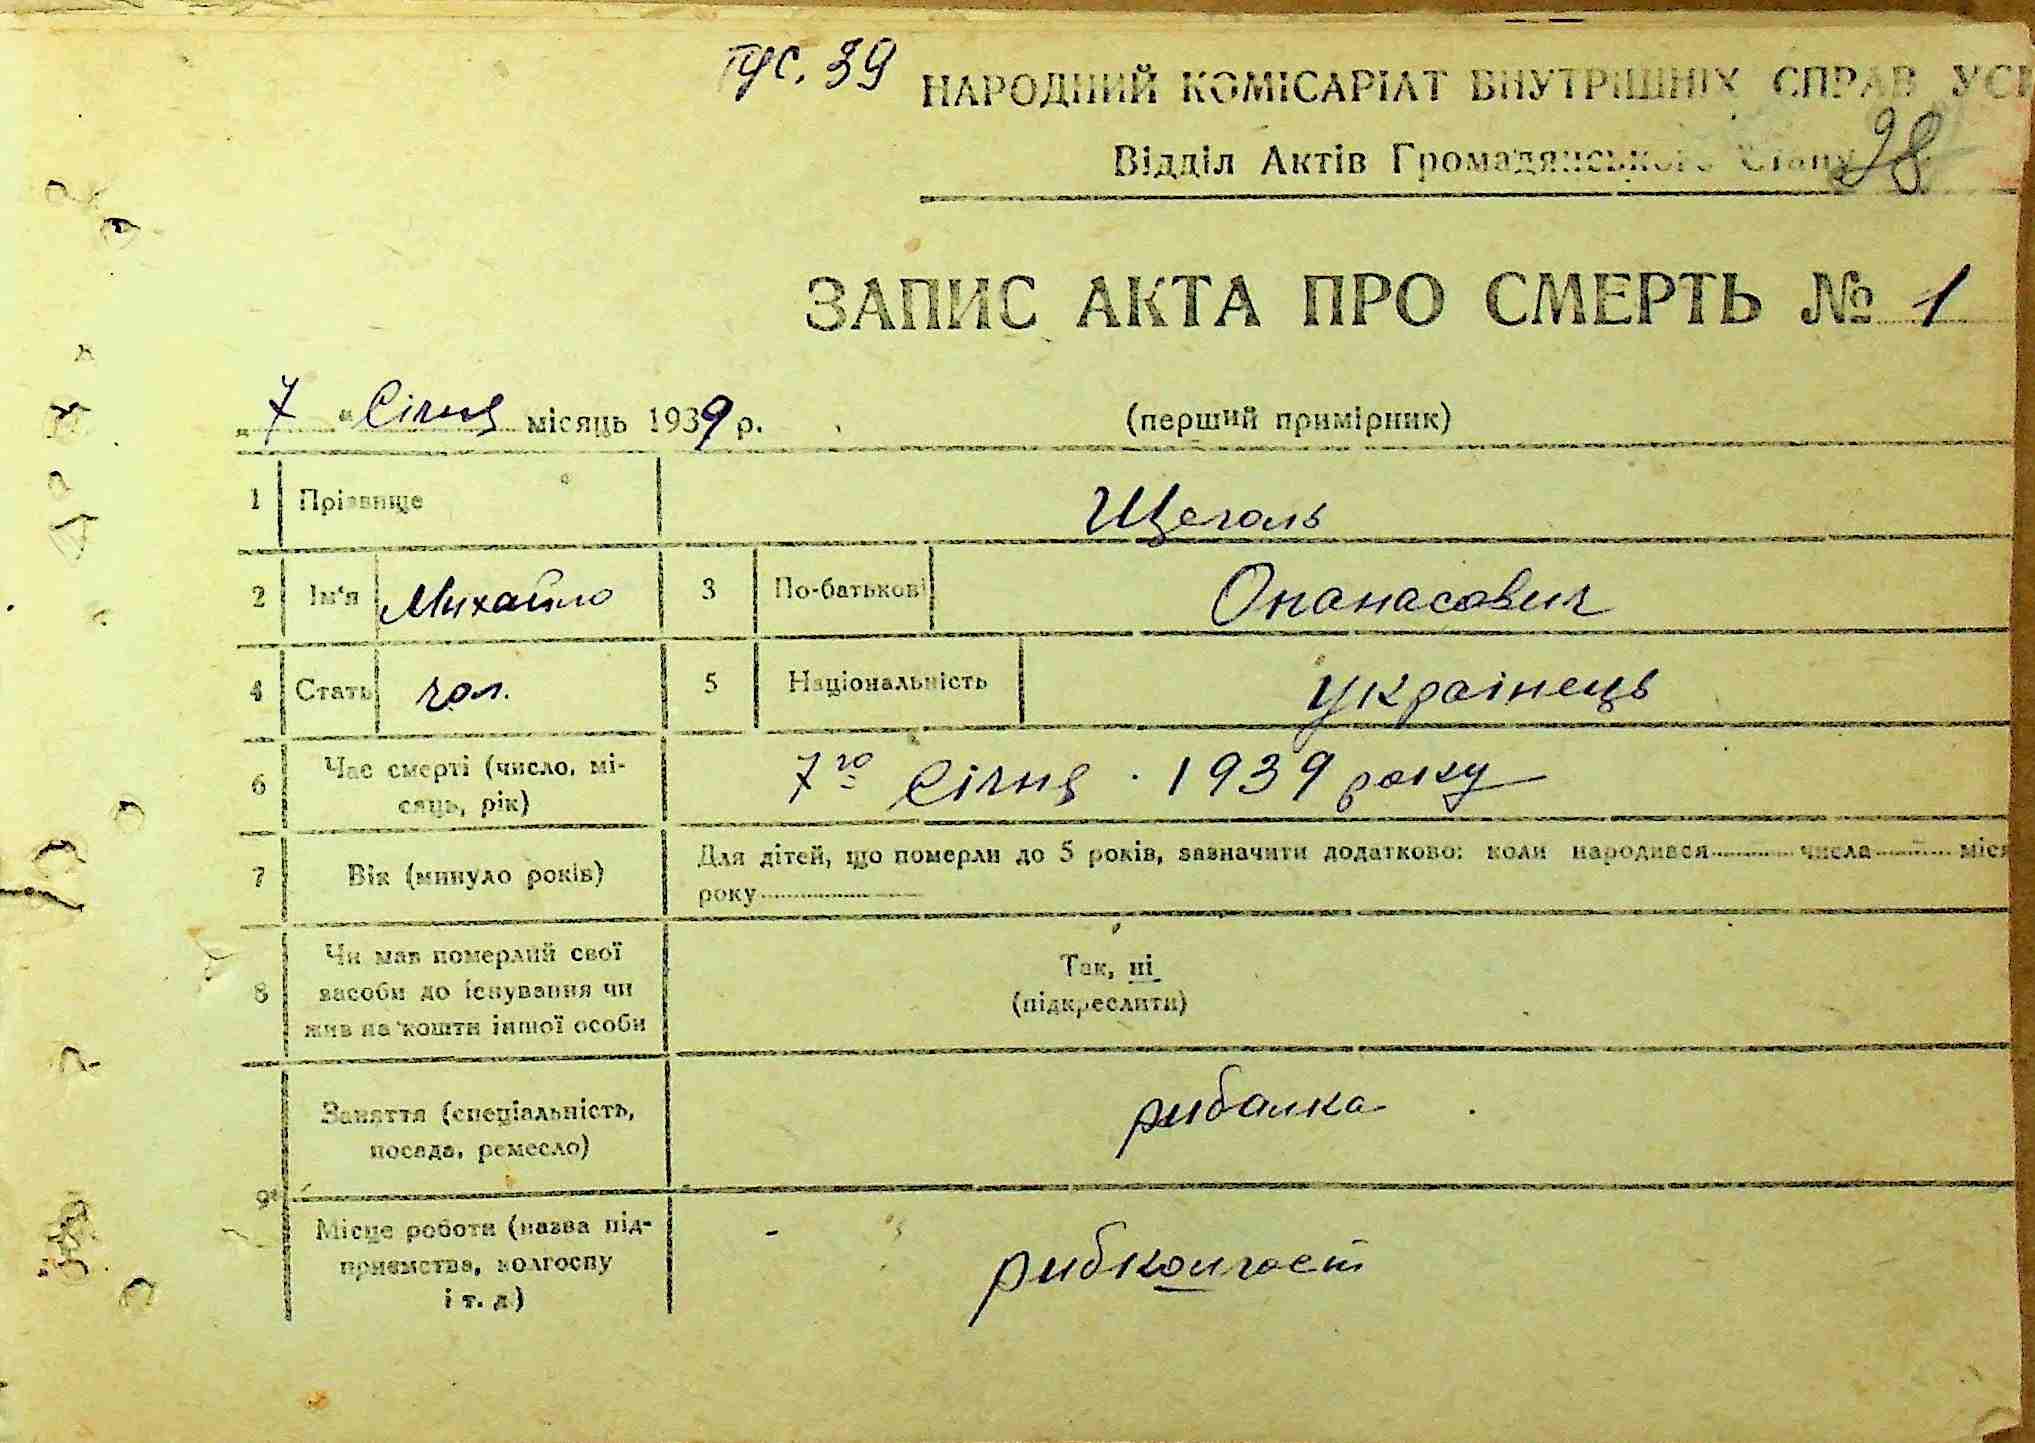 39
НАРОДНИЙ КОМІСАРІАТ ВНУТРІШНІХ СПРАВ УСР
Відділ Актів Громадянського Стану
28
ЗАПИС АКТА ПРО СМЕРТЬ № 1
„ 7 “ Січня місяць 1939 р. (перший примірник)
1 Прізвище Щеголь
2 Ім'я Михайло 3 По-батькові Опанасович
4 Стать чол. 5 Національність українець
6 Час смерті (число, мі-
сяць, рік) 7го Січня 1939 року
7 Вік (минуло років) Для дітей, що померли до 5 років, зазначити додатково: коли народився числа міся
року
8 Чи мав померлий свої
засоби до існування чи
жив на кошти іншої особи
Так, ні
(підкреслити)
9 Заняття (спеціальність,
посада, ремесло) рибалка
Місце роботи (назва під-
приємства, колгоспу
і т. д.)